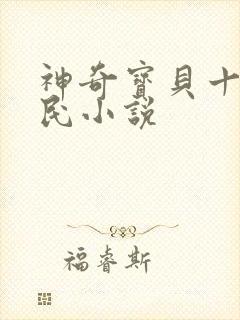 神奇寶貝十
民小說
福睿斯